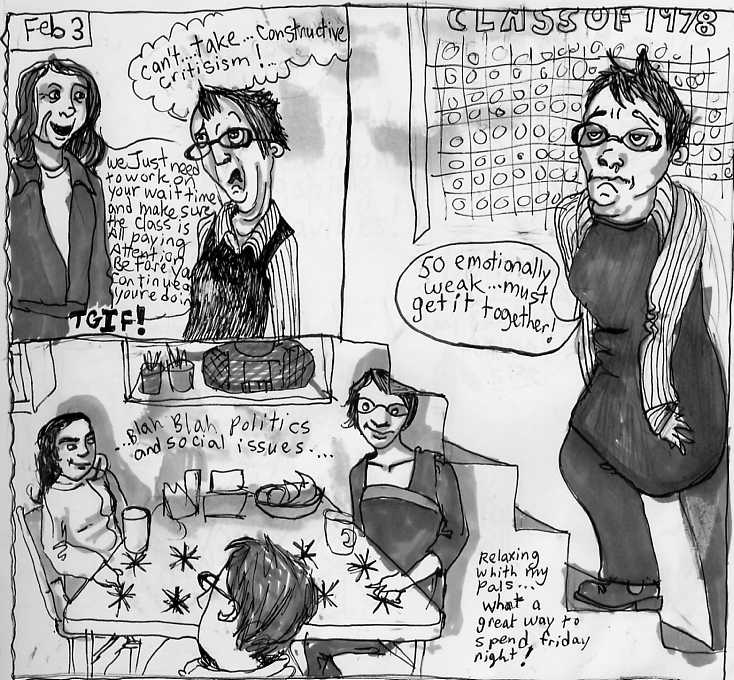 Feb 3
can't...take...constructive
critisism!..
we Just need
to work on
your wait time
and make sure
the class is
All paying
Attention
Before ya
Continue
you're doin
TGIF!
CLASS OF 1978
SO emotionally
weak...must
get it together!
...Blah Blah politics
and social issues....
Relaxing
whith my
pals...
What a
great way to
spend friday
night!